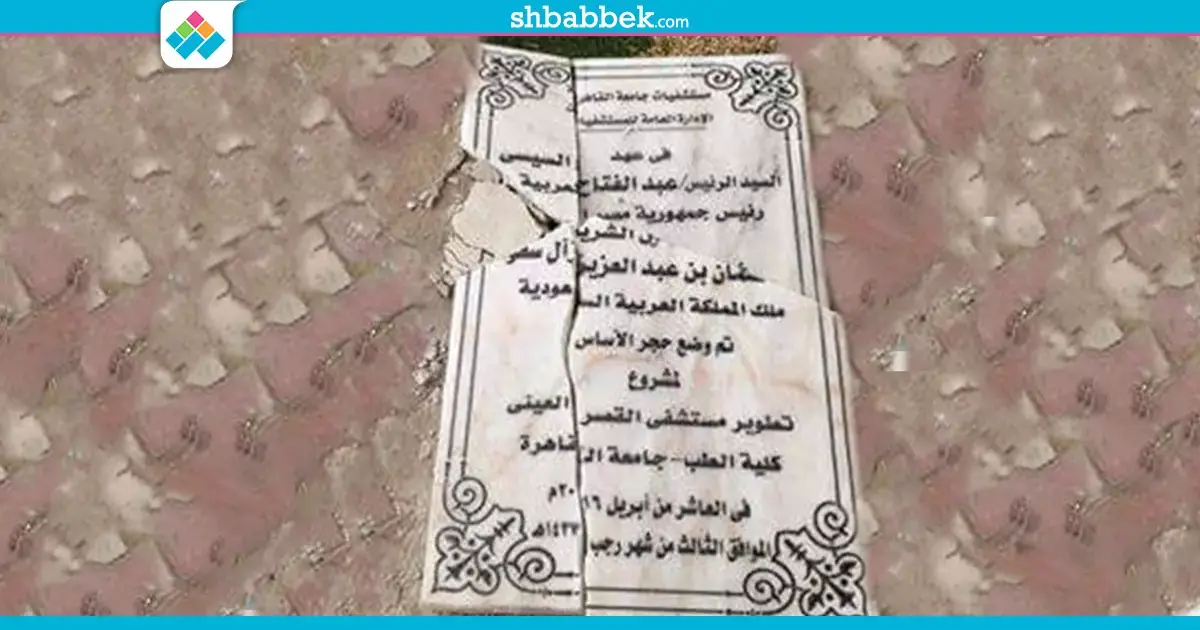 shbabbek.com
مستشفيات جامعة القاهرة
الإدارة العامة للمستشفيات
فى عهد
السيد الرئيس/عبد الفتاح السيسى
رئيس جمهورية مصر العربية
الشريفين
بن عبد العزيز آل سعود
ملك المملكة العربية السعودية
تم وضع حجر الأساس
لمشروع
تطوير مستشفى القصر العينى
كلية الطب - جامعة القاهرة
فى العاشر من أبريل ٢٠١٦م
الموافق الثالث من شهر رجب ١٤٣٧هـ